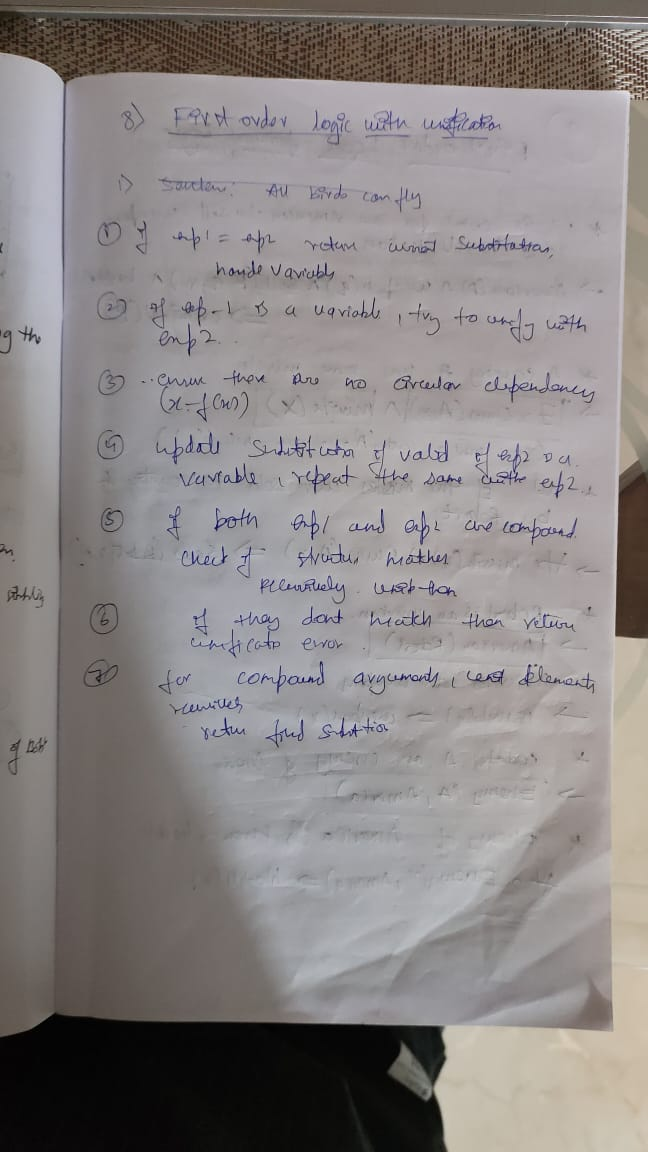 8) First order logic with unification
1) Sentence: All Birds can fly
① If exp1 = exp2 return current substitution,
handle variables
② If exp-1 is a variable, try to unify with
exp2.
③ ensure there are no circular dependency
(x=f(x))
④ update substitution if valid if exp2 is a
variable, repeat the same with exp2.
⑤ If both exp1 and exp2 are compound
check if structure matches
recursively
⑥ If they dont match then return
unification error.
⑦ for compound arguments, elements
return substitution
g the
of